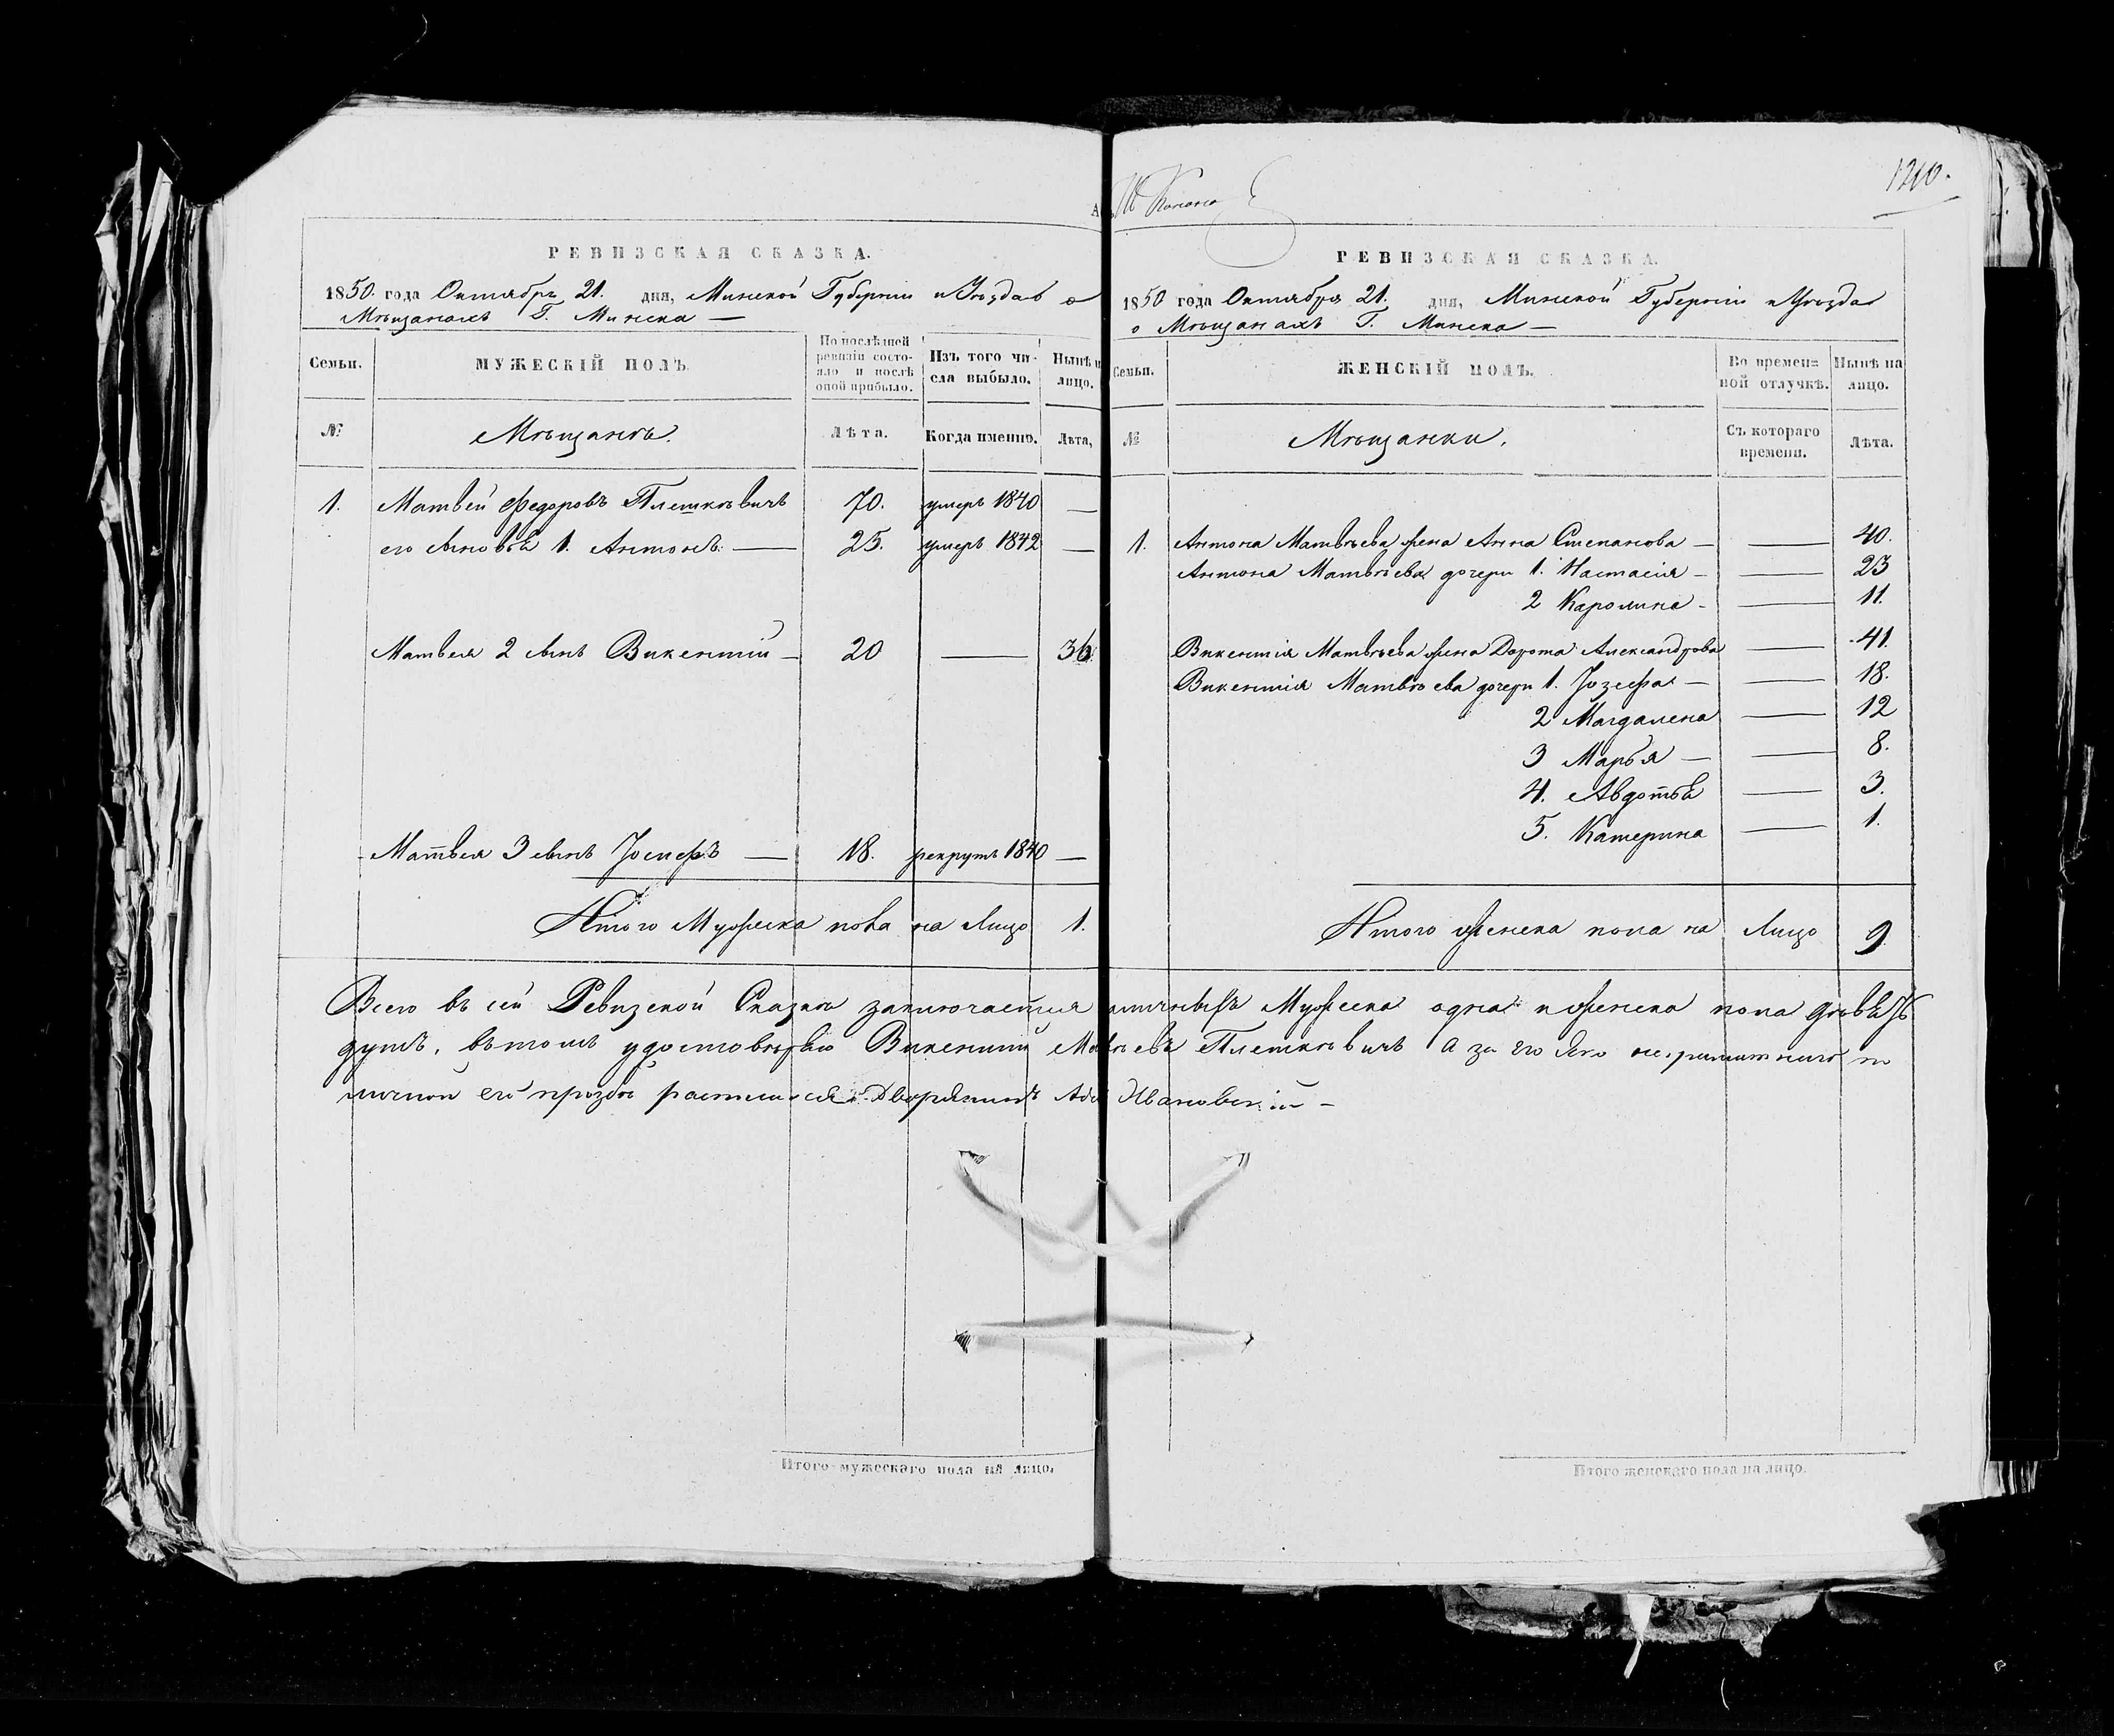 1210.
РЕВИЗСКАЯ СКАЗКА.
1850. года Октября 21. дня, Минской Губерніи и Уѣзда о
Мѣщанахъ Г. Минска —
Семьи.
МУЖЕСКІЙ ПОЛЪ.
По послѣдней ревизіи состояло и послѣ оной прибыло.
Изъ того числа выбыло.
Нынѣ на лицо.
№
Мѣщанъ.
Лѣта.
Когда именно.
Лѣта,
1. Матвей Федоровъ Плешкѣвичъ 70. умеръ 1840 —
его сыновья 1. Антонъ — 25. умеръ 1842 —
Матвея 2 сынъ Викентій — 20 — 36.
Матвея 3 сынъ Іосифъ — 18. рекрутъ 1840 —
Итого Мужеска пола на Лицо 1.
РЕВИЗСКАЯ СКАЗКА.
1850 года Октября 21. дня, Минской Губерніи и Уѣзда
о Мѣщанахъ Г. Минска —
Семьи.
ЖЕНСКІЙ ПОЛЪ.
Во временной отлучкѣ.
Нынѣ на лицо.
№
Мѣщанки.
Съ котораго времени.
Лѣта.
1. Антона Матвѣева жена Анна Степанова — — 40.
Антона Матвѣева дочери 1. Настасія — — 23
2 Каролина — — 11.
Викентія Матвѣева жена Дорота Александрова — 41.
Викентія Матвѣева дочери 1. Іозефа — — 18.
2 Магдалена — 12
3 Марья — — 8.
4. Авдотья — 3.
5. Катерина — 1.
Итого женска пола на Лицо 9.
Всего въ сей Ревизской Сказкѣ заключается Мужеска одна и женска пола девять
душъ, въ томъ удостовѣряю Викентій Матвѣевъ Плешкѣвичъ а за его яко неграмотнаго по
личной его прозбѣ росписался Дворянинъ Ивановскій —
Итого мужескаго пола на лицо.
Итого женскаго пола на лицо.